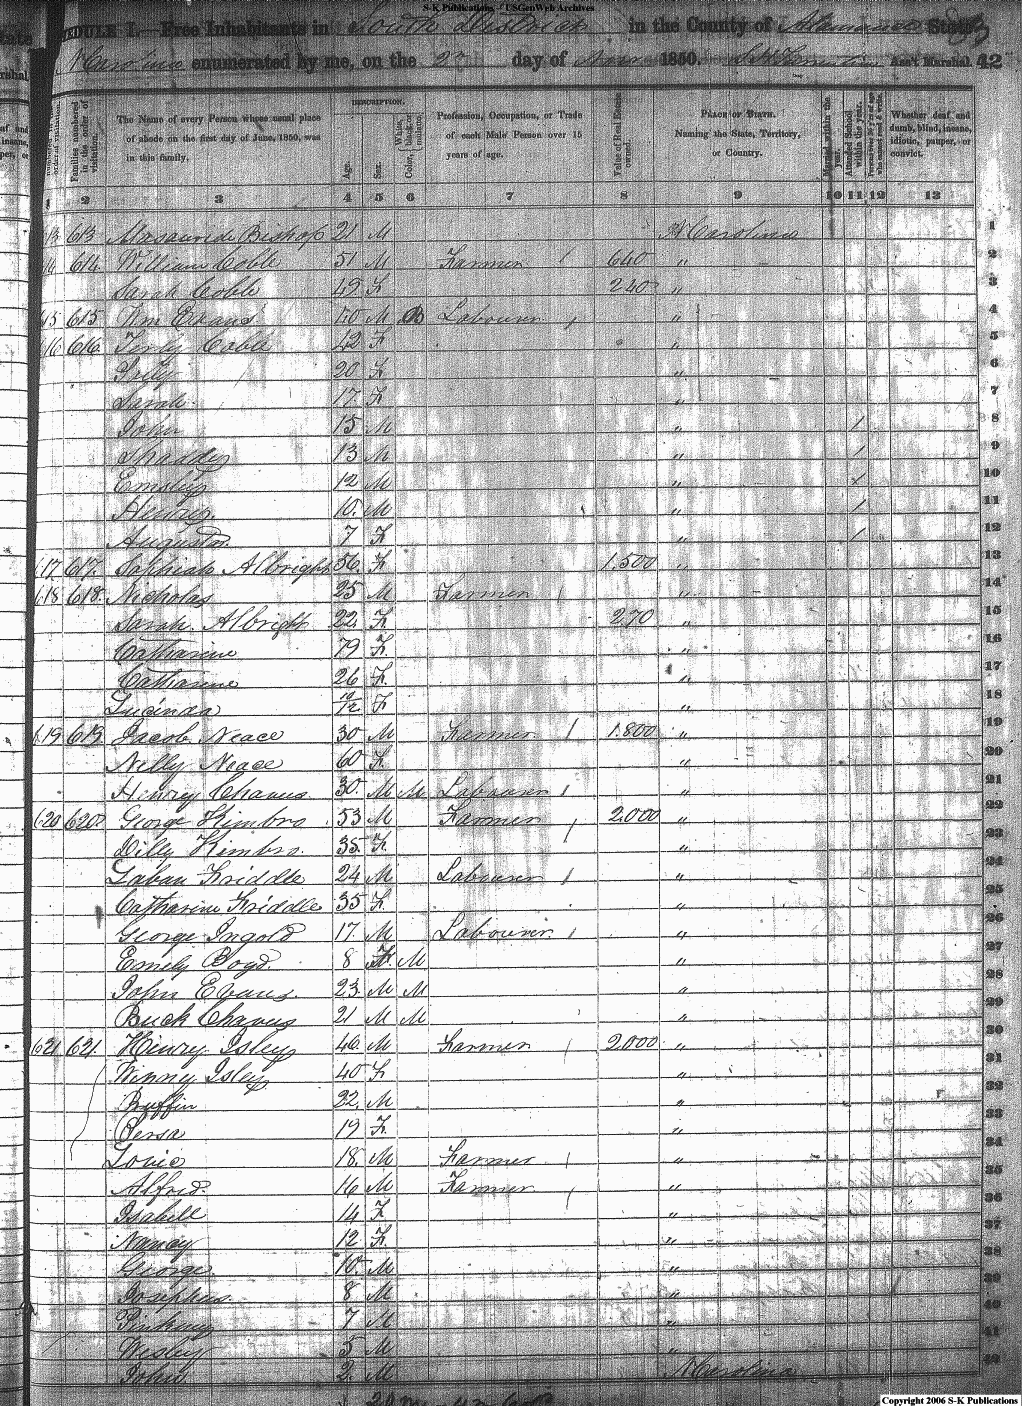 S-K Publications - USGenWeb Archives
SCHEDULE I.—Free Inhabitants in South District in the County of Alamance State
N Carolina enumerated by me, on the day of Nov 1850. Ass't Marshal. 42
The Name of every Person whose usual place of abode on the first day of June, 1850, was in this family.
DESCRIPTION.
Age. Sex. Color,
Profession, Occupation, or Trade of each Male Person over 15 years of age.
Value of Real Estate owned.
PLACE OF BIRTH. Naming the State, Territory, or Country.
Married within the year. Attended School within the year.
Whether deaf and dumb, blind, insane, idiotic, pauper, or convict.
1 2 3 4 5 6 7 8 9 10 11 12 13
613 Bishop 21 M N Carolina 1
614 William Coble 51 M Farmer 640 " 2
Sarah Coble 49 F 240 " 3
615 615 Wm Evans M B Labourer " 4
616 616 Coble 42 F " 5
20 F " 6
Sarah 17 F " 7
John 15 M " 1 8
13 M " 1 9
Emsley 12 M " 10
Henry 10 M " 1 11
Augusta 7 F " 1 12
617 617 Albright 56 F 1.500 " 13
618 618 Nicholas 25 M Farmer " 14
Sarah Albright 22 F 270 " 15
Catharine 79 F " 16
Catharine 26 F " 17
Lucinda F " 18
619 619 Jacob Neace 30 M Farmer 1.800 " 19
Nelly Neace 60 F " 20
Henry Chavus 30 M M Labourer " 21
620 620 George Kimbro 53 M Farmer 2.000 " 22
Dilly Kimbro 35 F " 23
Laban Friddle 24 M Labourer " 24
Catharine Friddle 35 F " 25
George Ingold 17 M Labourer " 26
Emily Boyd 8 F M " 27
John Evans 23 M M " 28
Buck Chavus 21 M M " 29
621 621 Henry Isley 46 M Farmer 2.000 " 30
Winney Isley 40 F " 31
Ruffin 22 M " 32
Persa 19 F " 33
Lovic 18 M Farmer " 34
Alfred 16 M Farmer " 35
Isabell 14 F " 36
Nancy 12 F " 37
George 10 M " 38
Josephus 8 M " 39
Pinkney 7 M " 40
Wesley 5 M " 41
John 2 M N Carolina 42
Copyright 2006 S-K Publications